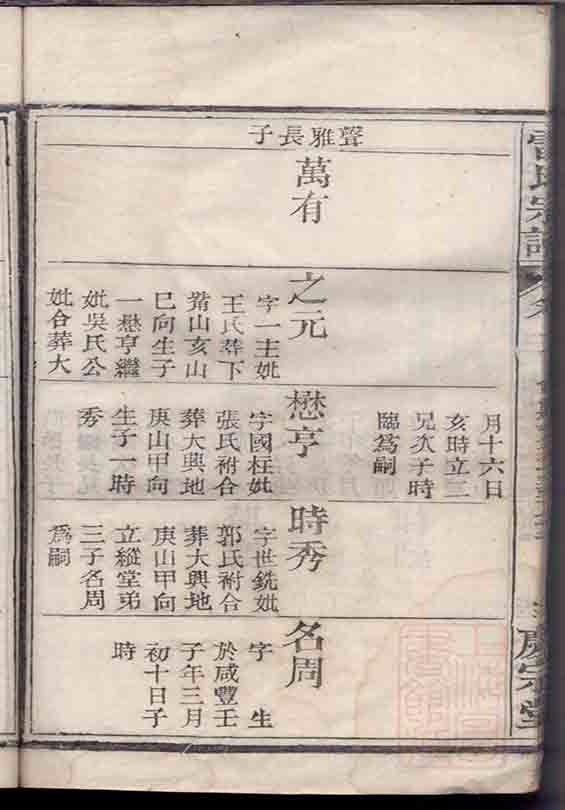 雷氏宗譜
聲雅長子
萬有
之元
字一主妣
王氏葬下
茅山亥山
巳向生子
一懋亨繼
妣吳氏公
妣合葬大
月十六日
亥時立二
兄次子時
臨為嗣
懋亨
字國柱妣
張氏祔合
葬大興地
庚山甲向
生子一時
秀
時秀
字世銑妣
郭氏祔合
葬大興地
庚山甲向
立縱堂弟
三子名周
為嗣
名周
字 生
於咸豐壬
子年三月
初十日子
時